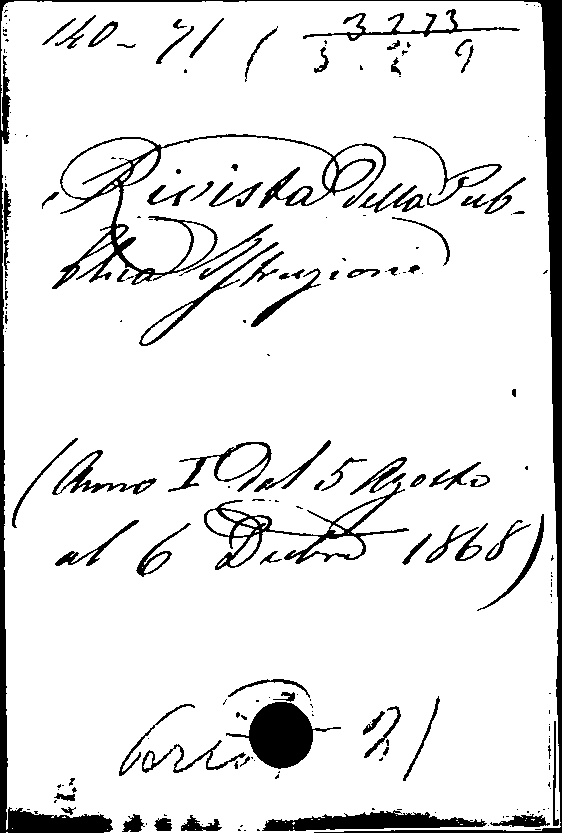 140-71 (
3273
3.2 9
Rivista della Pub-
blica Istruzione
(Anno I Dal 5 Agosto
al 6 Dicbre 1868)
21